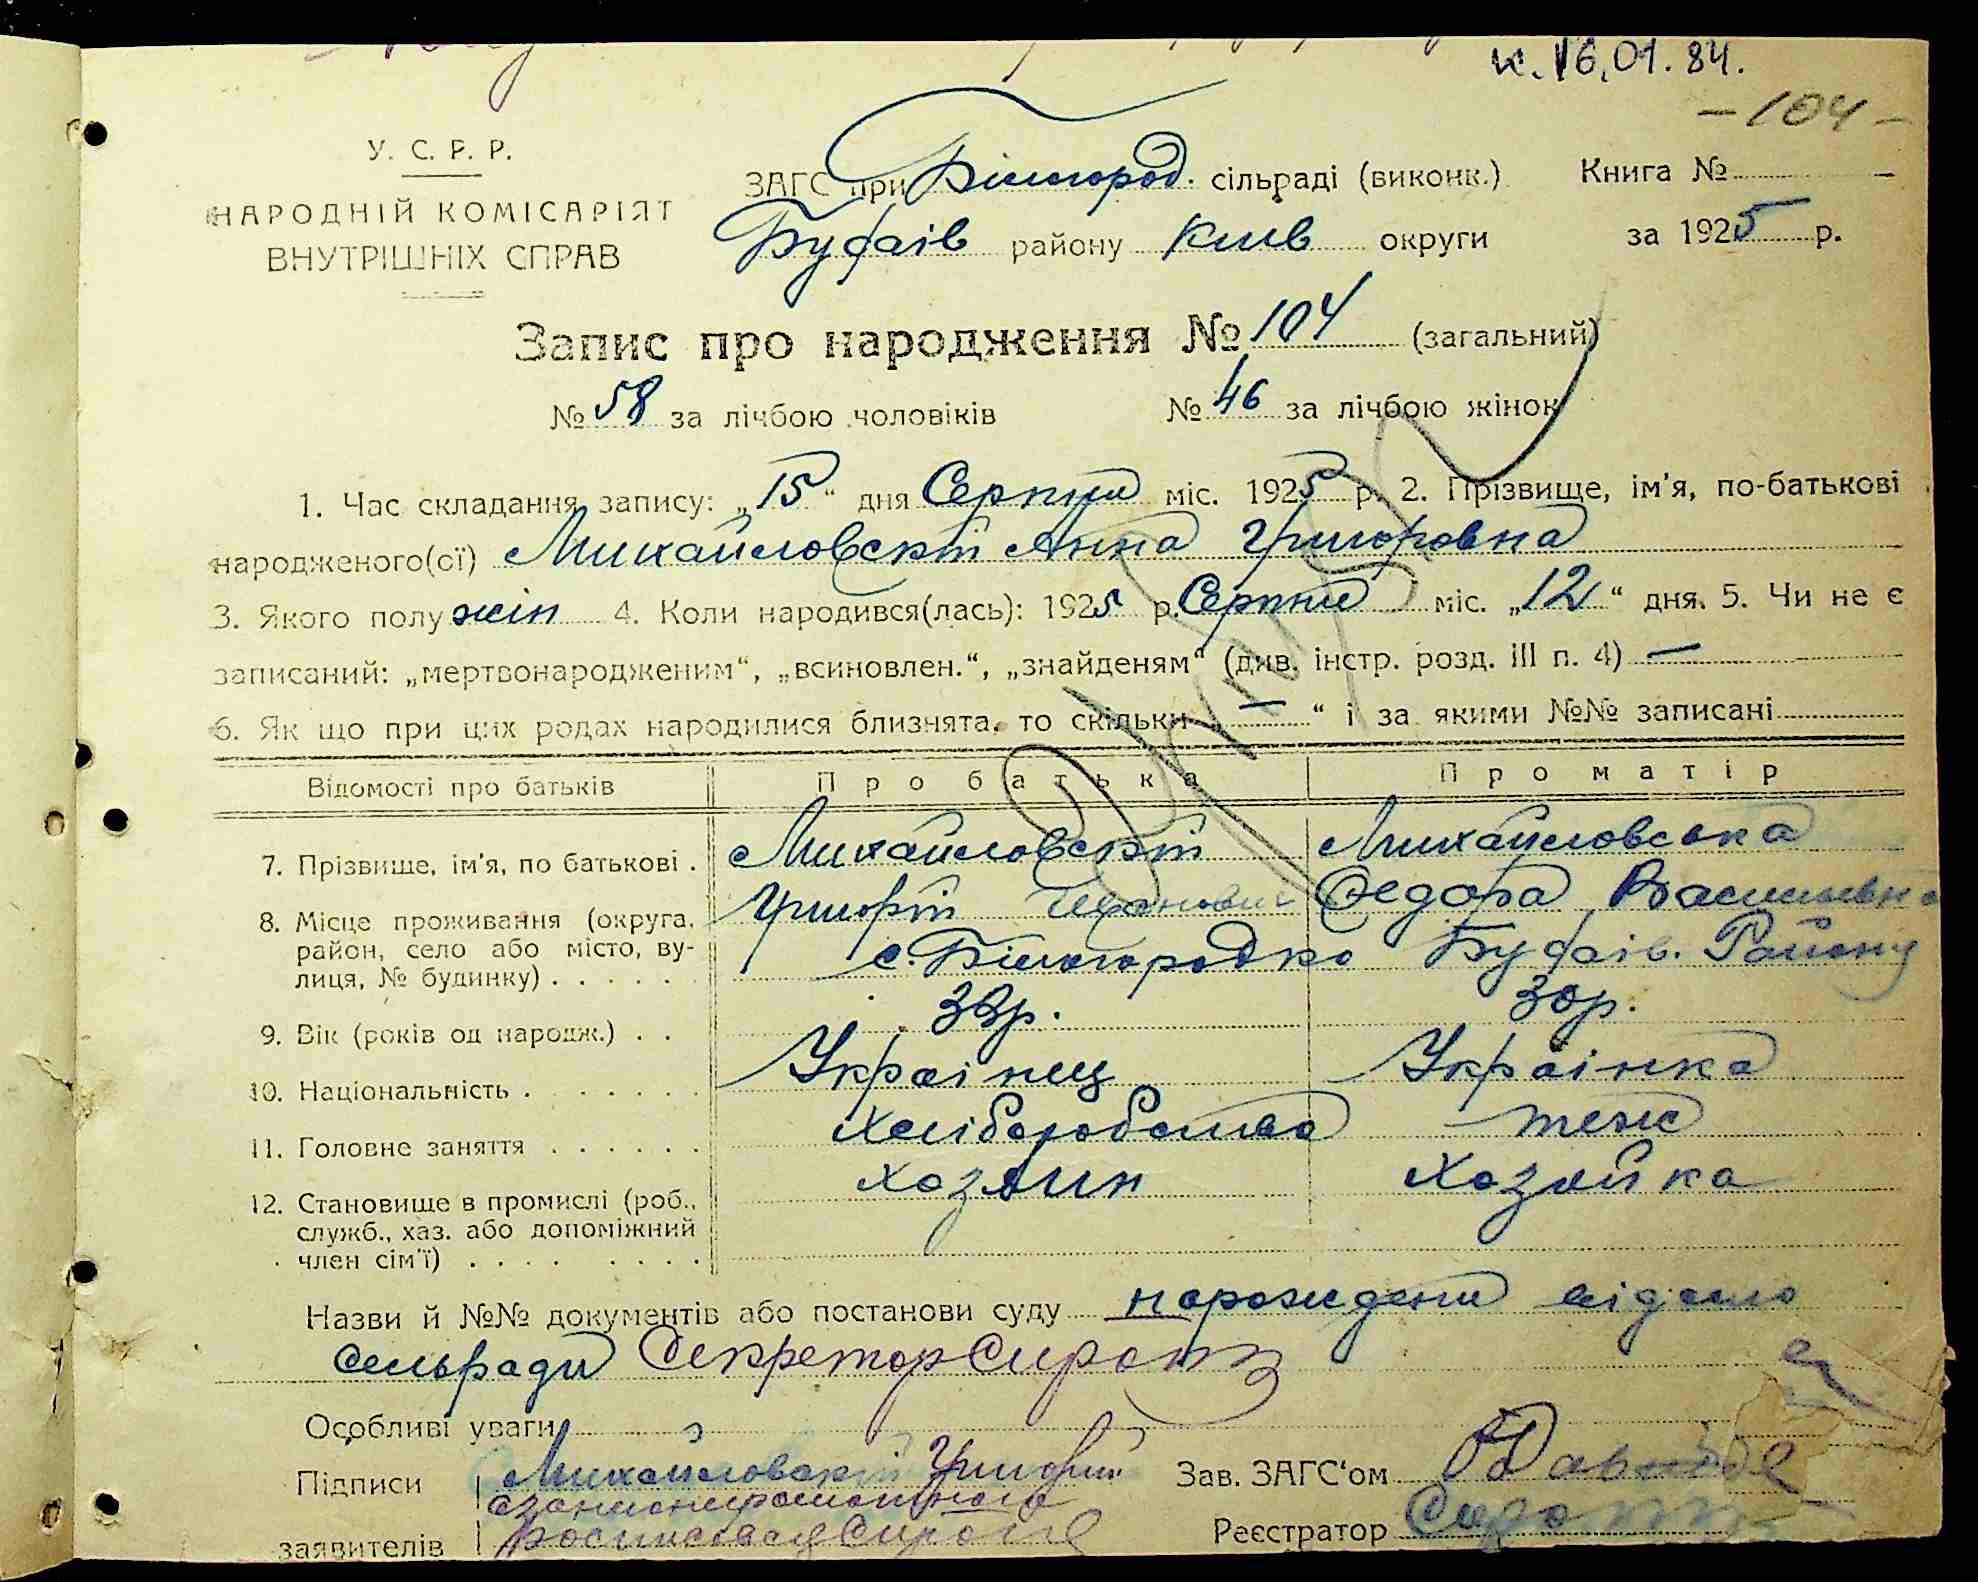 к. 16.01.84.
-104-
У. С. Р. Р.
НАРОДНІЙ КОМІСАРІЯТ
ВНУТРІШНІХ СПРАВ
ЗАГС при Білогород. сільраді (виконк.) Книга №
Буфаів району Київ округи за 1925 р.
Запис про народження № 104 (загальний)
№ 58 за лічбою чоловіків № 46 за лічбою жінок
1. Час складання запису: „15“ дня Серпня міс. 1925 р. 2. Прізвище, ім'я, по-батькові
народженого(ої) Михайловскій Анна Григоровна
3. Якого полу жін 4. Коли народився(лась): 1925 р. Серпня міс. „12“ дня. 5. Чи не є
записаний: „мертвонародженим“, „всиновлен.“, „знайденям“ (див. інстр. розд. III п. 4) —
6. Як що при цих родах народилися близнята, то скільки „—“ і за якими №№ записані
Відомості про батьків Про батька Про матір
7. Прізвище, ім'я, по батькові . Михайловскій Михайловська
Григорій Федора Васильевна
8. Місце проживання (округа, район, село або місто, вулиця, № будинку) . . . . . . с. Білогородка Буфаів. Району
9. Вік (років од народж.) . . 30р.
10. Національність . . . . . . . Українец Українка
11. Головне заняття . . . . . . Хліборобство теж
12. Становище в промислі (роб., Хозяин Хозяйка
служб., хаз. або допоміжний
член сім'ї) . . . . . . . . .
Назви й №№ документів або постанови суду нарождения відомо
сельради Секретар Сирота
Особливі уваги
Підписи Михайловскій Григорій
заявителів Росписався
Зав. ЗАГС'ом
Реєстратор Сирота